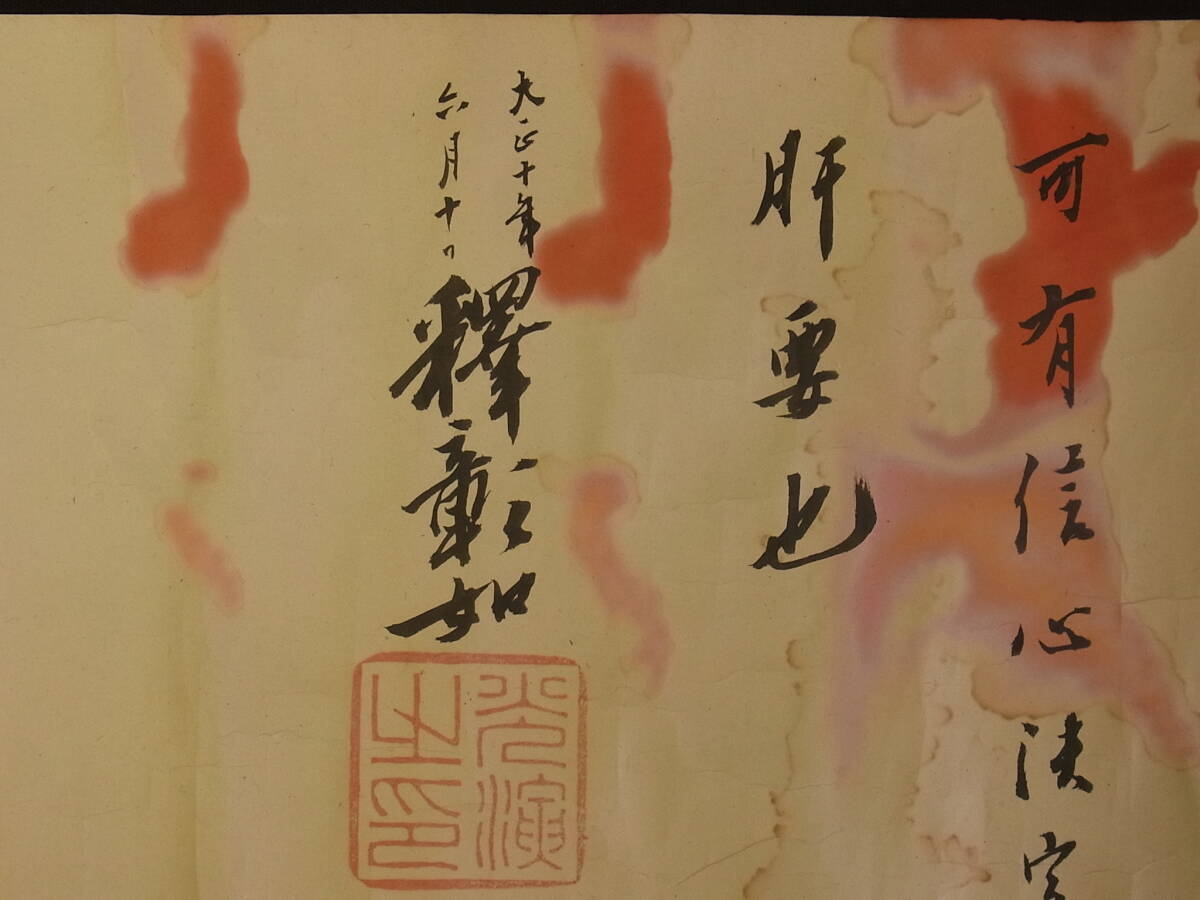 可有信心決定
肝要也
大正十年
六月十日
釋彰如
光演
之印